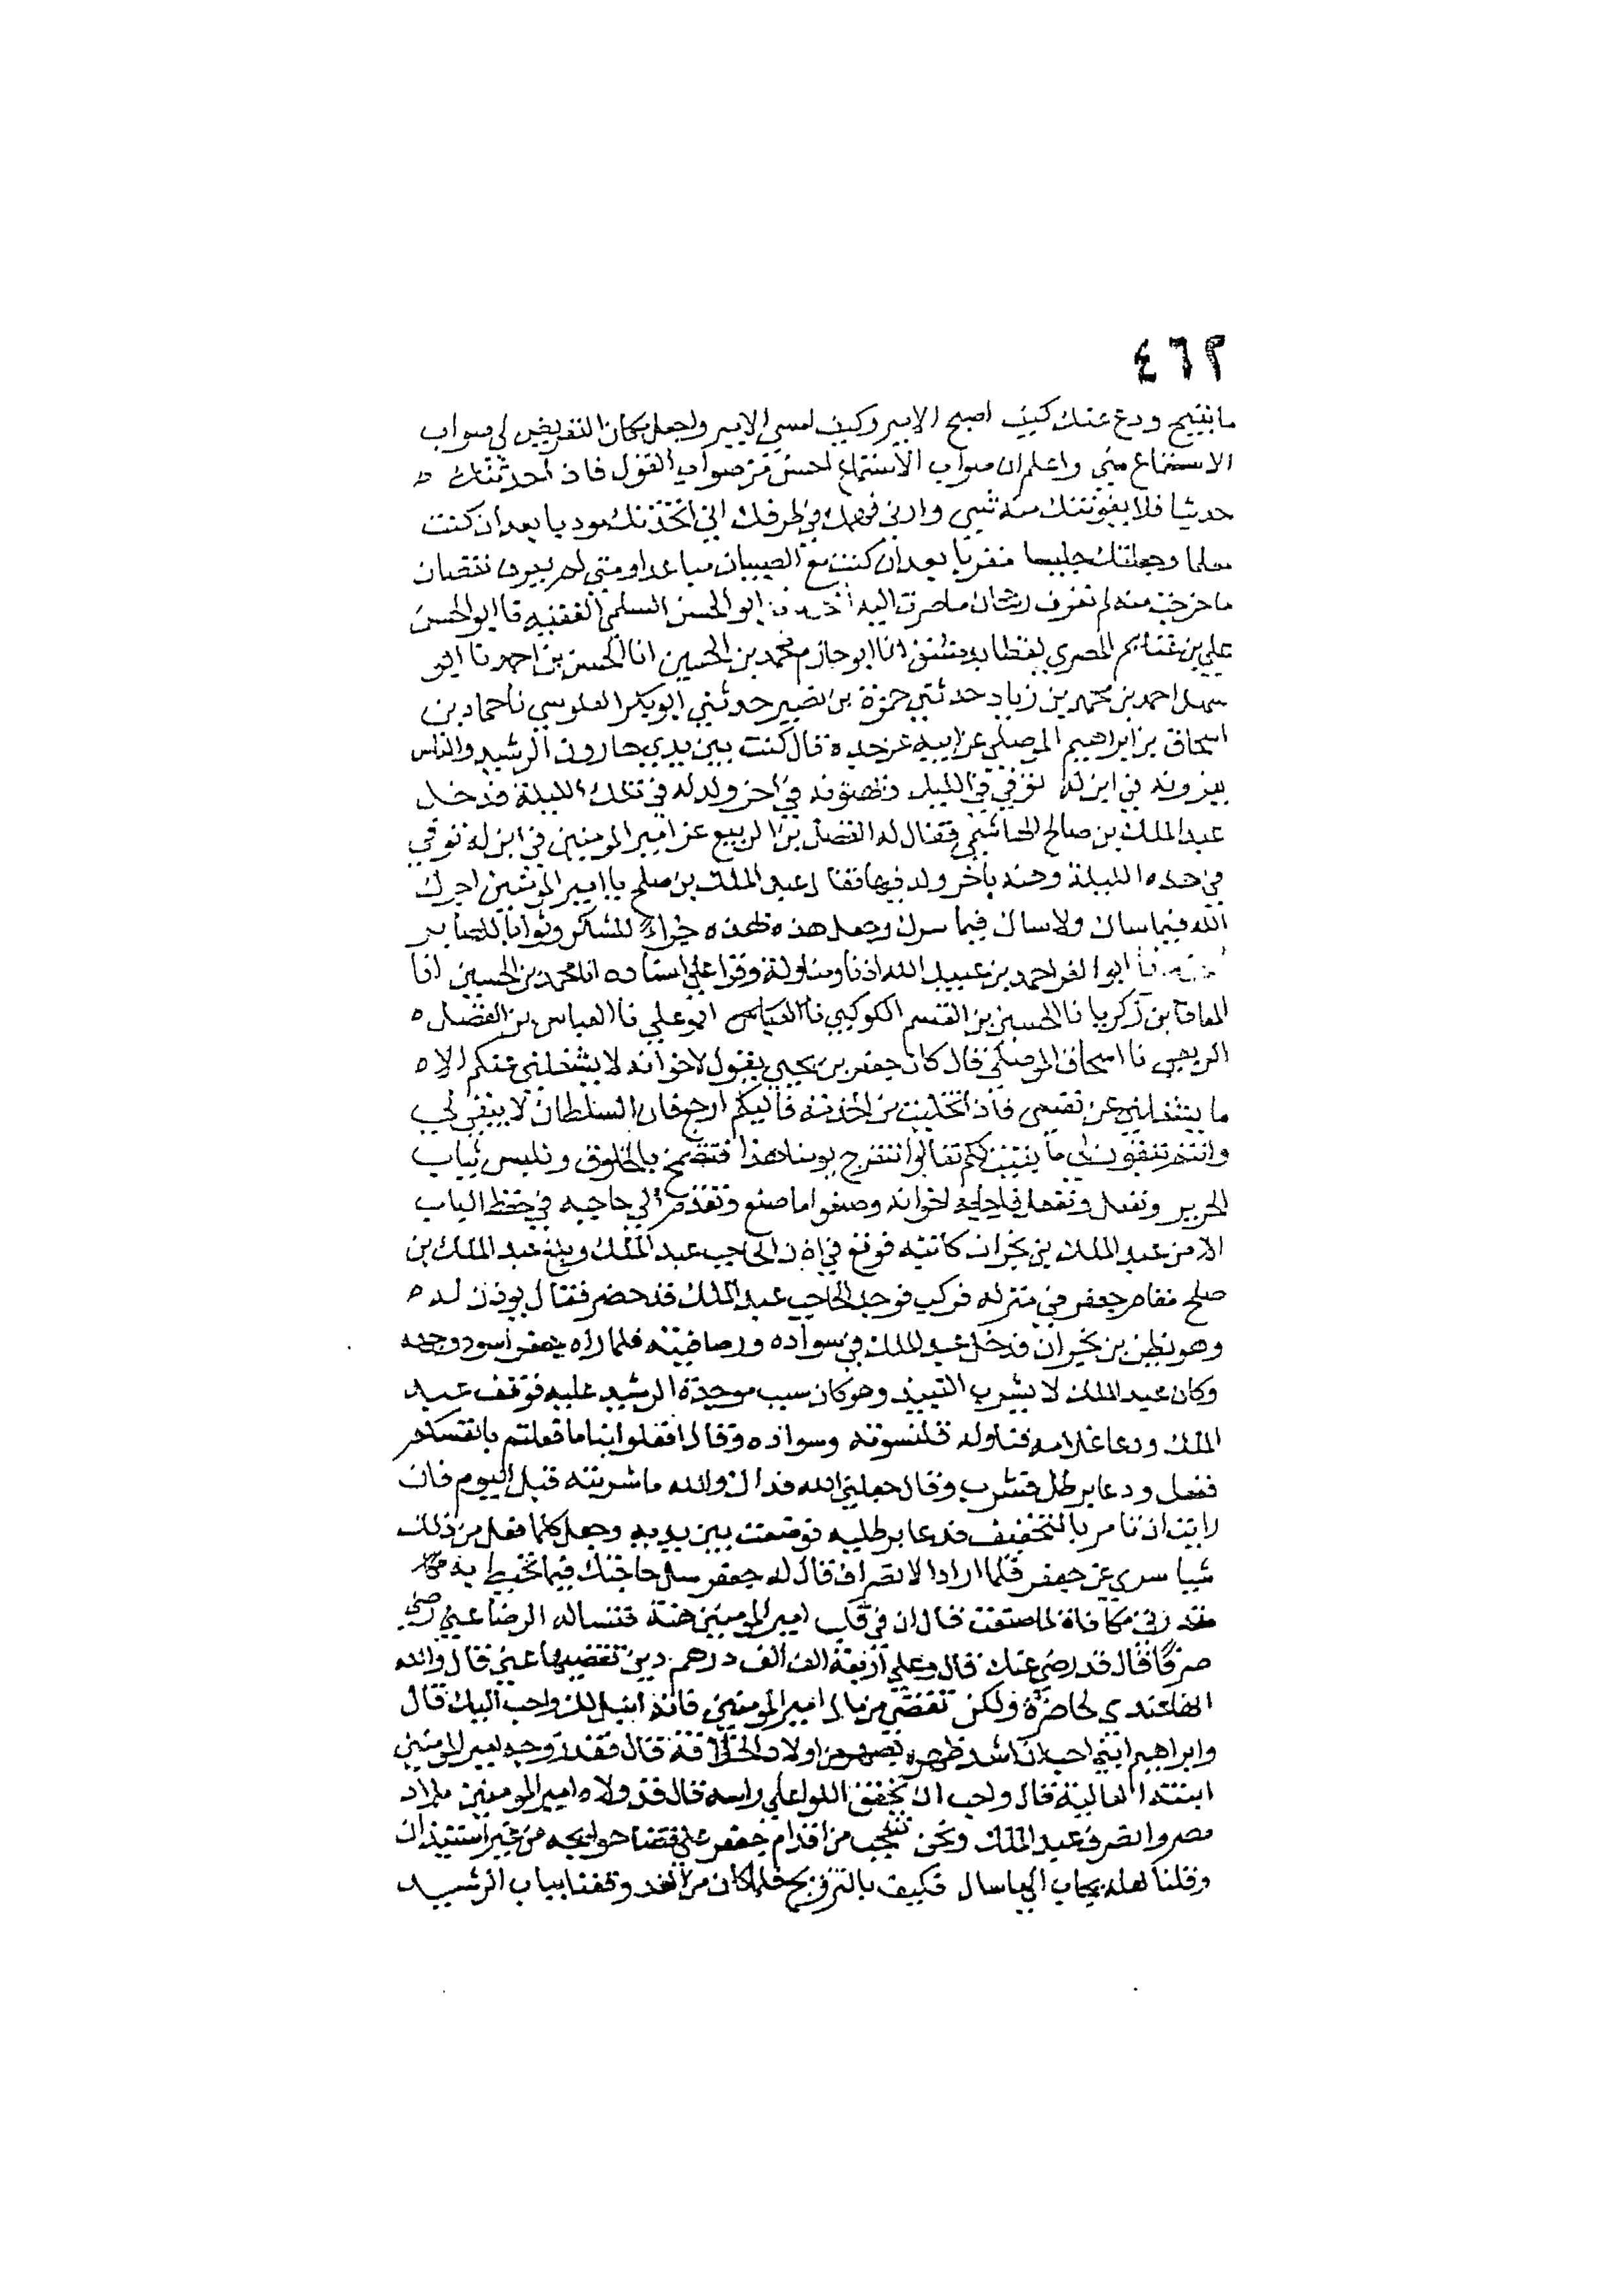 ٤٦٢
ما يقبح ودع عنك كيف اصبح الامير وكيف امسى الامير واجعل مكان التقريض لي صواب
الاستماع مني واعلم ان صواب الاستماع احسن من صواب القول فاذا حدثتك
حديثا فلا يفوتنك منه شي وارني فهمك في طرفك اني اتخذتك مودبا بعد ان كنت
معلما وجعلتك جليسا مقربا بعد ان كنت مع الصبيان مباعدا ومتى لم تعرف نقصان
ما خرجت منه لم تعرف رجحان ما صرت اليه ابو الحسن السلمي الفقيه نا ابو الحسن
علي بن غنايم المصري لفظا بدمشق انا ابو حازم محمد بن الحسين انا الحسن بن احمد نا ابو
سهل احمد بن محمد بن زياد حدثني حمزة بن نصير حدثني ابو بكر العلوسي نا حماد بن
اسحاق بن ابراهيم الموصلي عن ابيه عن جده قال كنت بين يدي هارون الرشيد والناس
يعزونه في ابن له توفي في الليل ويهنونه في اخر ولد له في تلك الليلة فدخل
عبد الملك بن صالح الهاشمي فقال له الفضل بن الربيع عز امير المومنين في ابن له توفي
في هذه الليلة وهنه باخر ولد فيها فقال عبد الملك بن صلح يا امير المومنين اجرك
الله فيما ساك ولا ساك فيما سرك وجعل هذه بهذه جزاء للشاكر وثوابا للصابر
ابو العز احمد بن عبيد الله اذنا ومناولة وقرا علي اسناده انا محمد بن الحسين انا
المعافا بن زكريا نا الحسين بن القسم الكوكبي نا العباس ابو علي نا العباس بن الفضل
الربعي نا اسحاق الموصلي قال كان جعفر بن يحيى يقول لاخوانه لا يشغلني عنكم الا
ما يشغلني عن نفسي فاذا تخليت من اخدمته فاليكم ارجع فان السلطان لا يبقى لي
وانتم تبقون لي ما بقيت لكم تعالوا نتفرج يومنا هذا فنتضمخ بالخلوق ونلبس ثياب
الحرير ونفعل ونفعل فاجابه اخوانه وصنعوا ما صنع وتقدم الى حاجبه في حفظ الباب
الا من عبد الملك بن بحران كاتبه فوقع في اذن الحاجب عبد الملك وبلغ عبد الملك بن
صلح مقام جعفر في منزله فركب فوجد الحاجب عبد الملك قد حضر فقال يوذن له
وهو يظن بن بحران فدخل عبد الملك في سواده ورصافيته فلما راه جعفر اسود وجهه
وكان عبد الملك لا يشرب النبيذ وهو كان سبب موجدة الرشيد عليه فوقف عبد
الملك ودعا غلامه فناوله قلنسوته وسواده وقال افعلوا بنا ما فعلتم بانفسكم
ففعل ودعا برطل فشرب وقال جعلني الله فداك والله ما شربته قبل اليوم فان
رايت ان تامر بالتخفيف فدعا برطلية فوضعت بين يديه وجعل كلما فعل من ذلك
شيا سري عن جعفر فلما اراد الانصراف قال له جعفر سل حاجتك فيما تحيط به
مقدرتي مكافاة لما صنعت قال ان في قلب امير المومنين هنة فتساله الرضا عني رضى
صرفا قال قد رضي عنك قال وعلي اربعة الف الف درهم دين تقضيها عني قال والله
انها عندي لحاضرة ولكن تقضى من مال امير المومنين فانه انبل لك واحب اليك قال
وابراهيم ابني احب ان اشد ظهره بصهر من اولاد الخلافة قال فقد زوجه امير المومنين
ابنته العالية قال واحب ان يخفق اللوا على راسه قال قد ولاه امير المومنين بلاد
مصر وانصرف عبد الملك ونحن نتعجب من اقدام جعفر على قضا حوايجه من غير استيذان
وقلنا لعله يجاب الى ما سال فكيف بالتزويج فلما كان من الغد وقفنا بباب الرشيد